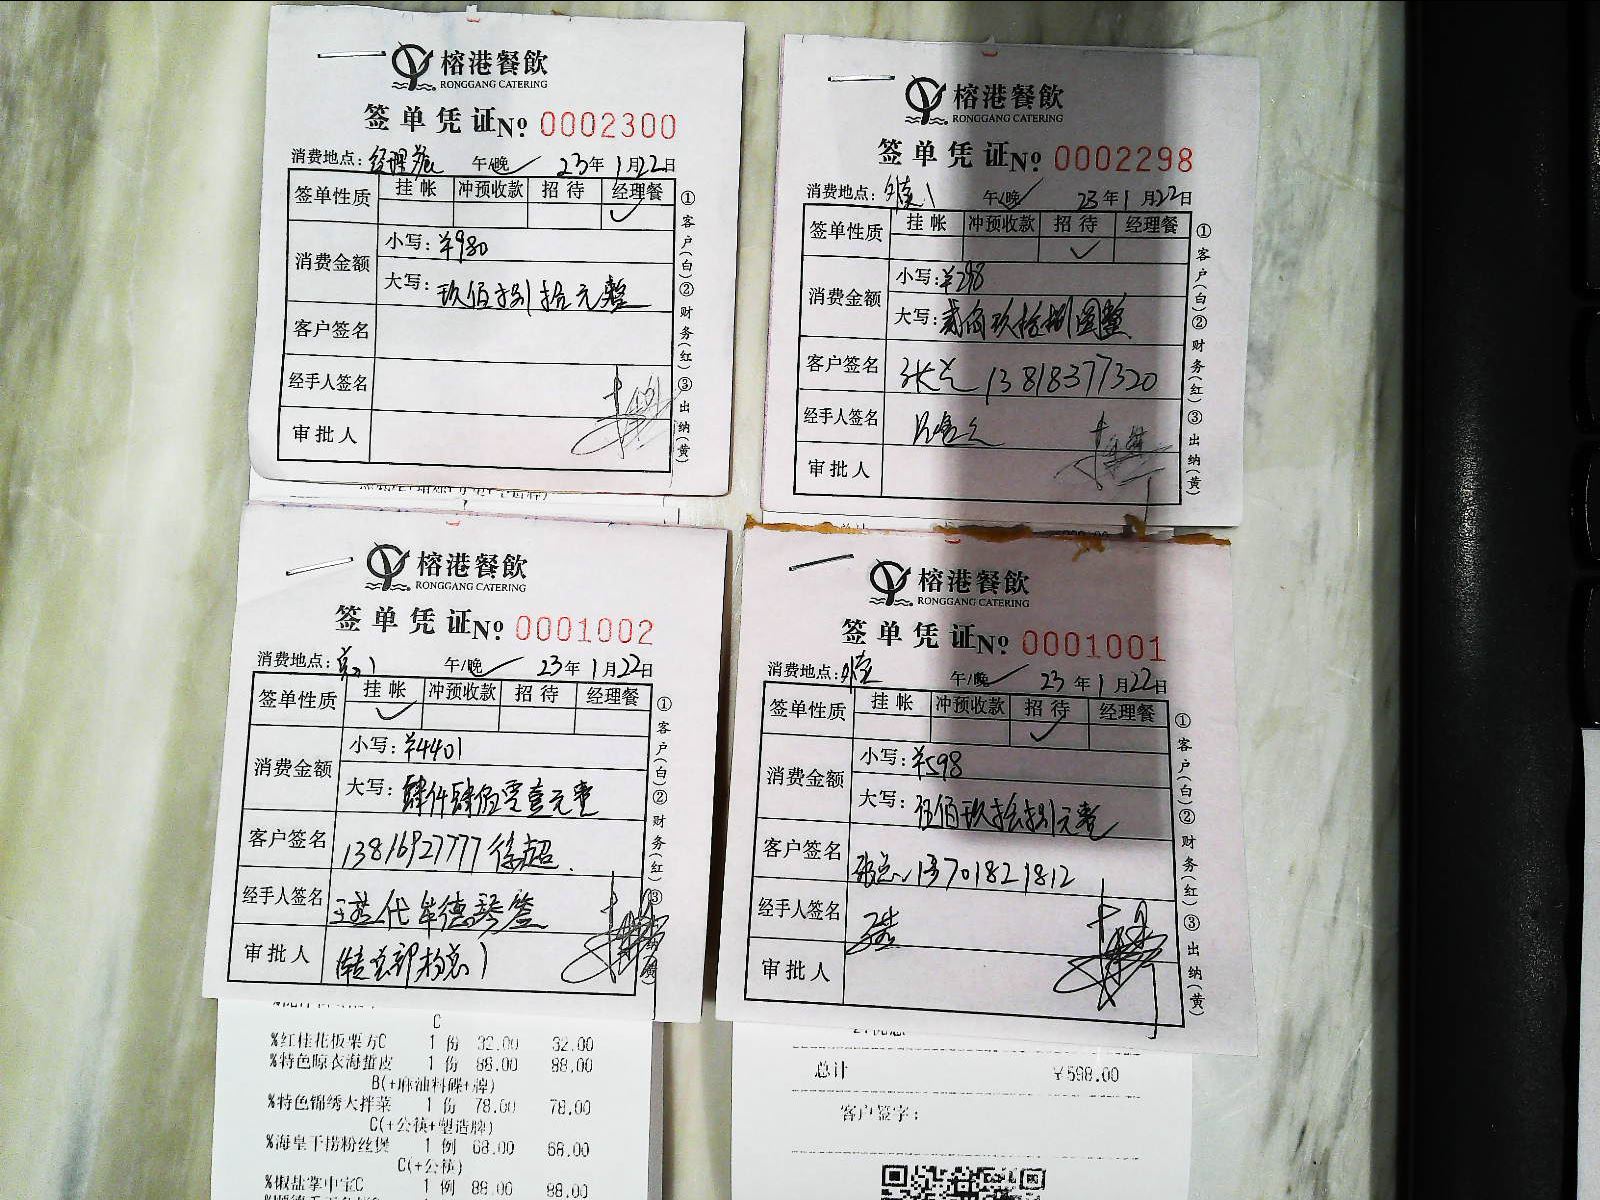 榕港餐飲
RONGGANG CATERING
签单凭证 № 0002300
消费地点: 经理餐 午/晚 23年1月22日
签单性质 挂帐 冲预收款 招待 经理餐
✓
消费金额 小写: ¥980
大写: 玖佰捌拾元整
客户签名
经手人签名
审批人
①客户(白)②财务(红)③出纳(黄)
榕港餐飲
RONGGANG CATERING
签单凭证 № 0002298
消费地点: 午/晚 23年1月22日
签单性质 挂帐 冲预收款 招待 经理餐
✓
消费金额 小写: ¥298
大写: 贰佰玖拾捌圆整
客户签名 张总 13818377320
经手人签名
审批人
①客户(白)②财务(红)③出纳(黄)
榕港餐飲
RONGGANG CATERING
签单凭证 № 0001002
消费地点: 午/晚 23年1月22日
签单性质 挂帐 冲预收款 招待 经理餐
✓
消费金额 小写: ¥4401
大写: 肆仟肆佰零壹元整
客户签名 13816927777 徐超.
经手人签名 代牟德琴签
审批人
①客户(白)②财务(红)③出纳(黄)
榕港餐飲
RONGGANG CATERING
签单凭证 № 0001001
消费地点: 午/晚 23年1月22日
签单性质 挂帐 冲预收款 招待 经理餐
✓
消费金额 小写: ¥598
大写: 伍佰玖拾捌元整
客户签名 13701821812
经手人签名
审批人
①客户(白)②财务(红)③出纳(黄)
C
%红桂花板栗方C 1 份 32.00 32.00
%特色晾衣海蜇皮 1 份 88.00 88.00
B(+麻油料碟+牌)
%特色锦绣大拌菜 1 份 78.00 78.00
C(+公筷+塑造牌)
%海皇干捞粉丝煲 1 例 68.00 68.00
C(+公筷)
%椒盐掌中宝C 1 例 88.00 88.00
总计 ¥598.00
客户签字: